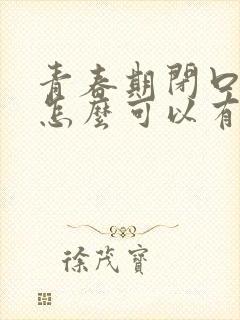 青春期閉口
怎麼可以有
徐茂寶